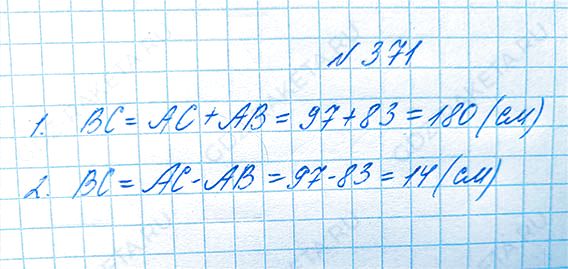 № 371
1. BC = AC + AB = 97 + 83 = 180 (см)
2. BC = AC - AB = 97 - 83 = 14 (см)